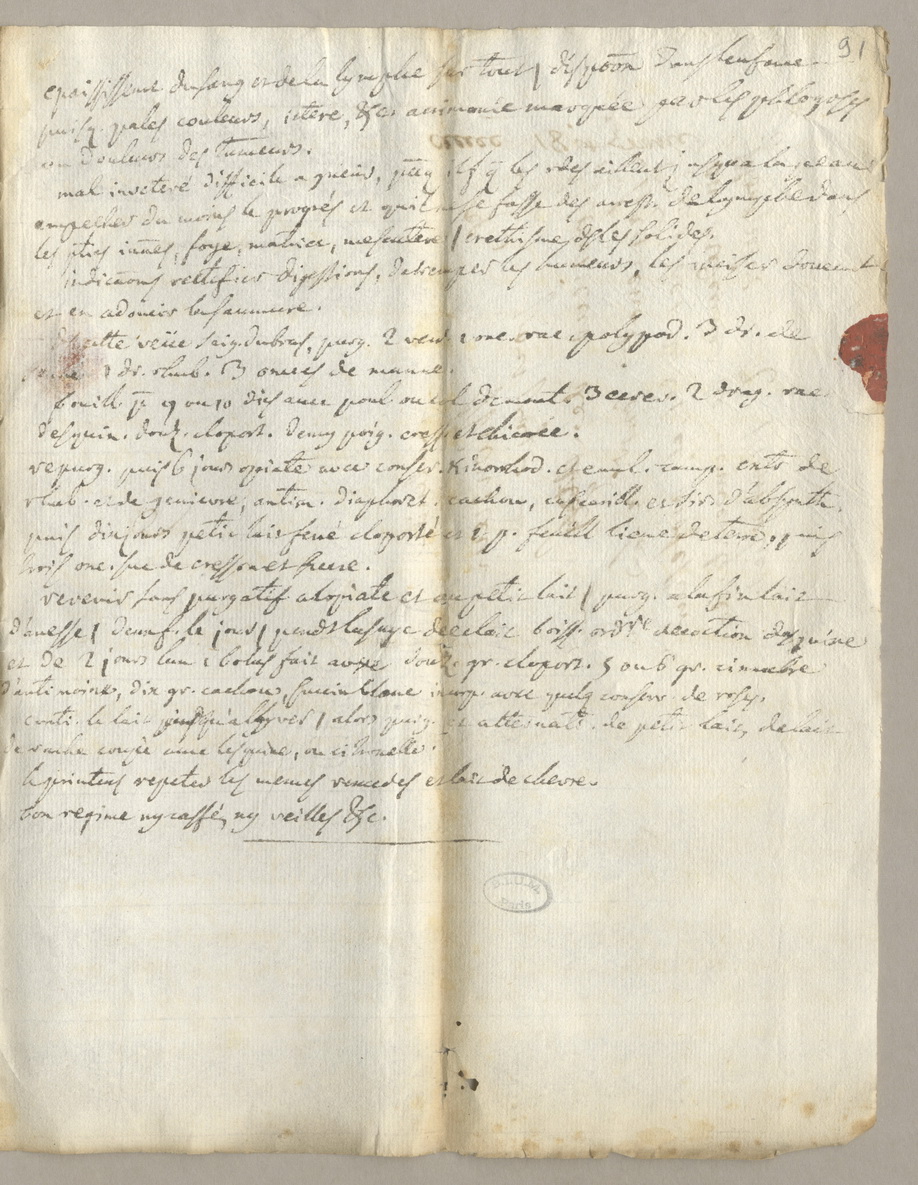 91
epaississement du sang et de la lymphe sur tout / disp̄on dans l'enfance
puisq. pales couleurs, ictere, &c. acrimonie marquée par les phlogoses
ou douleurs des tumeurs.
mal inveteré difficile a guerir, les
empecher du moins le progrés et qu'il ne se fasse des arrests de la lymphe dans
les pties in̄nes, foye, matrice, mesentere / erethisme des solides.
indicaōns rectifier digestions, detremper les humeurs, les
et en adoucir la saumure.
cette veüe saig. du bras, purg. 2 one. rac. polypod. 3 dr. de
dr. rhub. 3 onces de manne.
bouill. pr 9 ou 10 dis avec poul. ou col de mout. 3 ecrev. 2 drag. rac.
d'esquin. douz. cloport. demy poig. cress. et chicorée.
repurg. puis 6 jours opiate avec conser. kinorrhod. et enul. camp. extr. de
rhub. et de genievre, antim. diaphoret. cachou, cascarill. et sir. d'absynth.
puis dix jours petit lait ferré cloporté et 1 p. feuill. lierre de terre, puis
trois onc. suc de cresson et
revenir sans purgatif a l'opiate et au petit lait / purg. a la fin lait
d'anesse / demy f. le jour / pendt l'usage de ce lait boiss. ordre decoction d'esquine
et de 2 jours l'un 1 bolus fait avec douz. gr. cloport. 5 ou 6 gr. cinnabre
d'antimoine, dix gr. cachou, succin blanc incorp. avec quelq. conserv. de roses.
conti. le lait jusqu'a l'hyver / alors purg. et alternati. de petit lait, de lait
de vache coupé avec l'esquine, ou citronelle.
le printems repeter les memes remedes et lait de chevre.
bon regime ny caffé, ny veilles &c.
B.I.U.M.
Paris